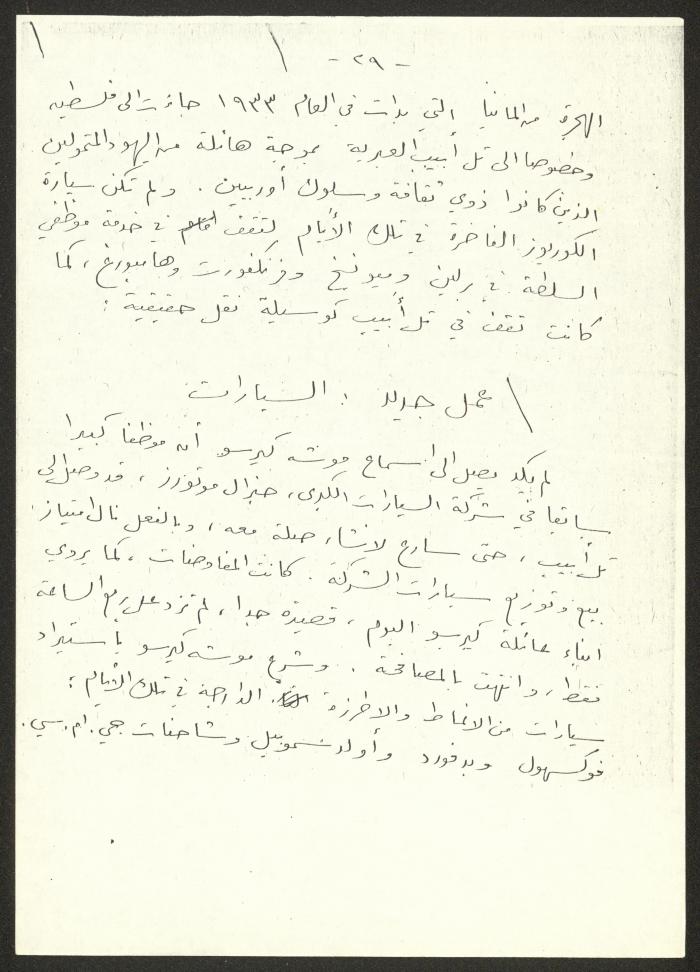 - ٢٩ -
الهجرة من المانيا التي بدات في العام ١٩٣٣ جاءت الى فلسطين
وخصوصا الى تل أبيب العبرية بموجة هائلة من اليهود المتمولين
الذين كانوا ذوي ثقافة وسلوك أوربيين . ولم تكن سيارة
الفاخرة في تلك الأيام لتقف في خدمة موظفي
السلطة في برلين وميونيخ وفرنكفورت وهامبورغ ، كما
كانت تقف في تل أبيب كوسيلة نقل حقيقية :
عمل جديد : السيارات
لم يكد يصل الى اسماع موشه كيرسو أن موظفا كبيرا
سابقا في شركة السيارات الكبرى ، جنرال موتورز ، قد وصل الى
تل أبيب ، حتى سارع لانشاء صلة معه ، وبالفعل نال امتياز
بيع وتوزيع سيارات الشركة . كانت المفاوضات ، كما يروي
ابناء عائلة كيرسو اليوم ، قصيرة جدا ، لم تزد على ربع الساعة
فقط ، وانتهت بالمصافحة . وشرع موشه كيرسو باستيراد
سيارات من الانماط والاطرزة الدارجة في تلك الأيام :
فوكسهول وبدفورد وأولدسموبيل وشاحنات جي . ام . سي .